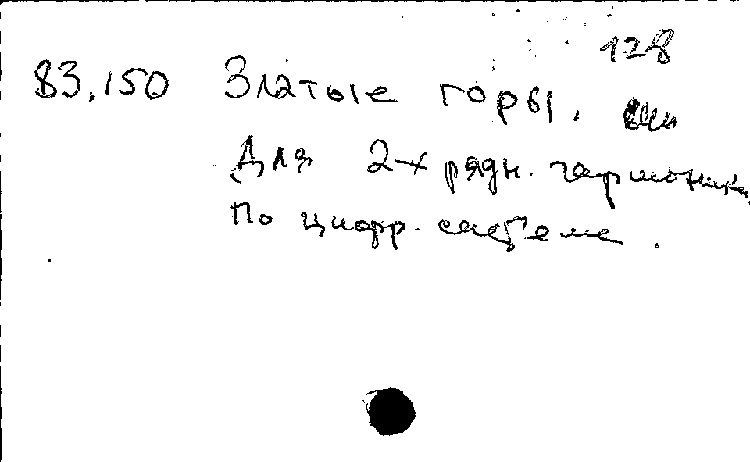 128
83.150 Златые горы.
Для 2-х рядн. гармоники
По цифр. системе.